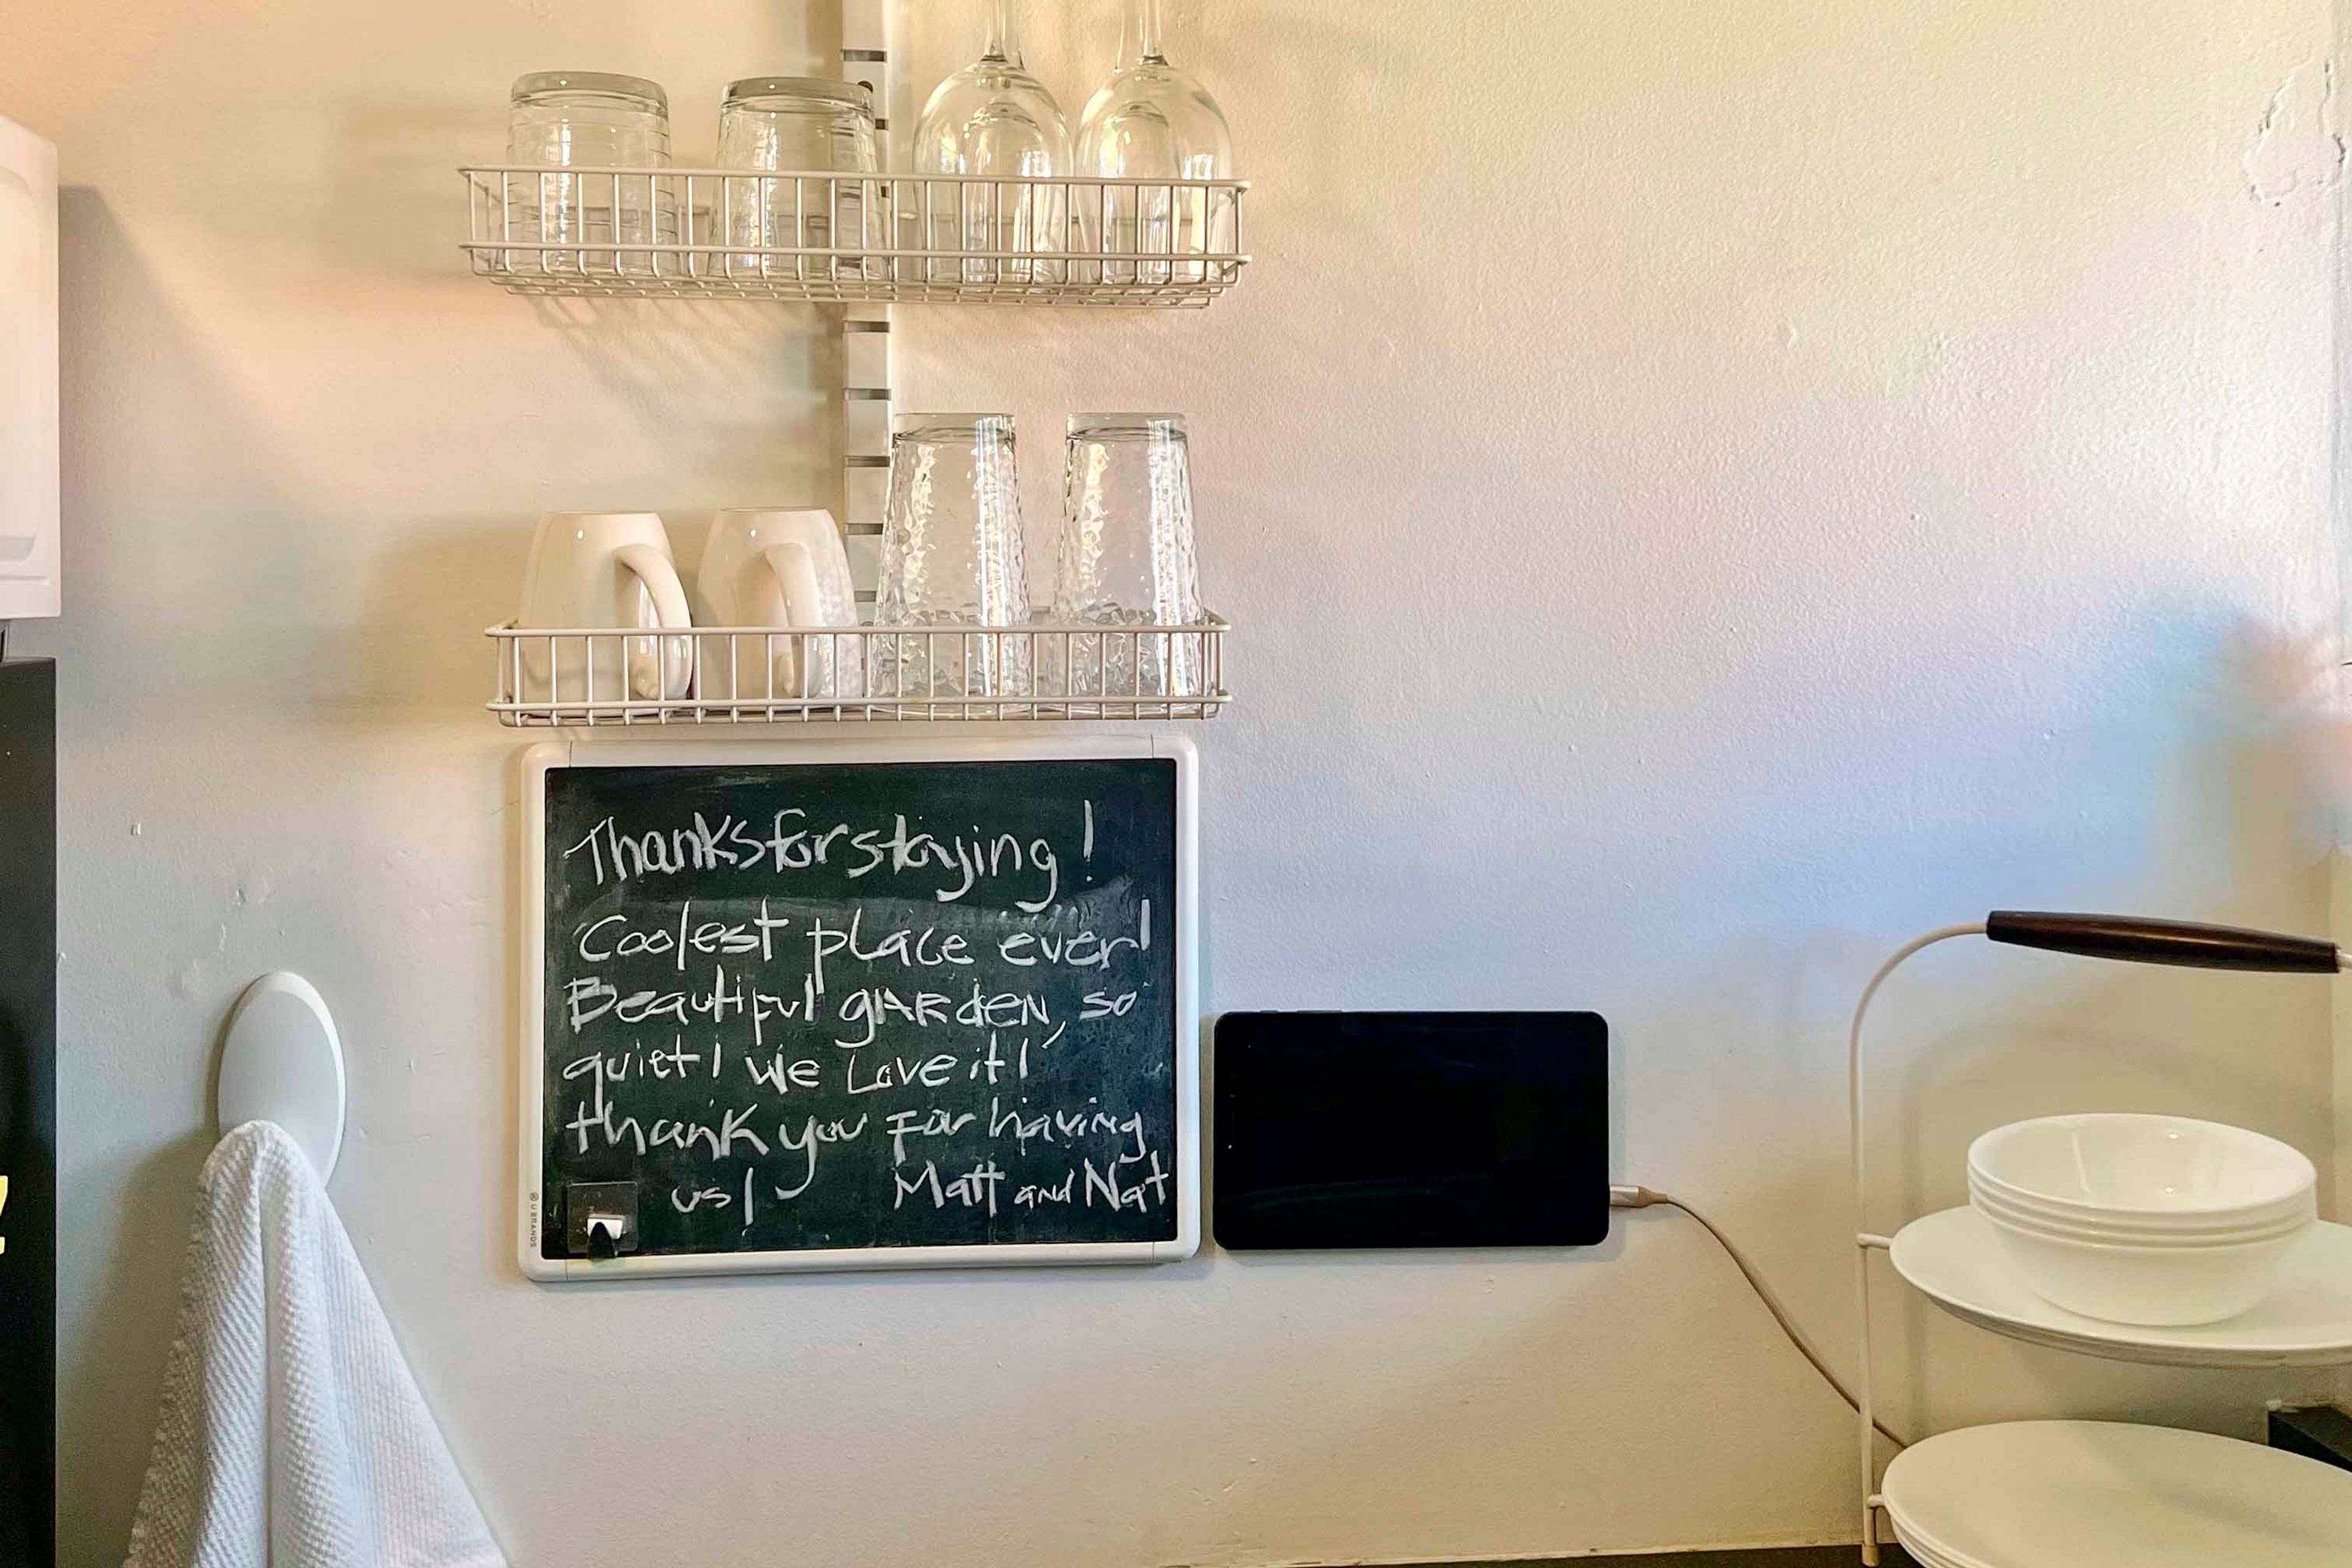 Thanks for staying!
Coolest place ever!
Beautiful gARden, so
quiet! We Love it!
thank you For having
us! Matt and Nat
U BRANDS